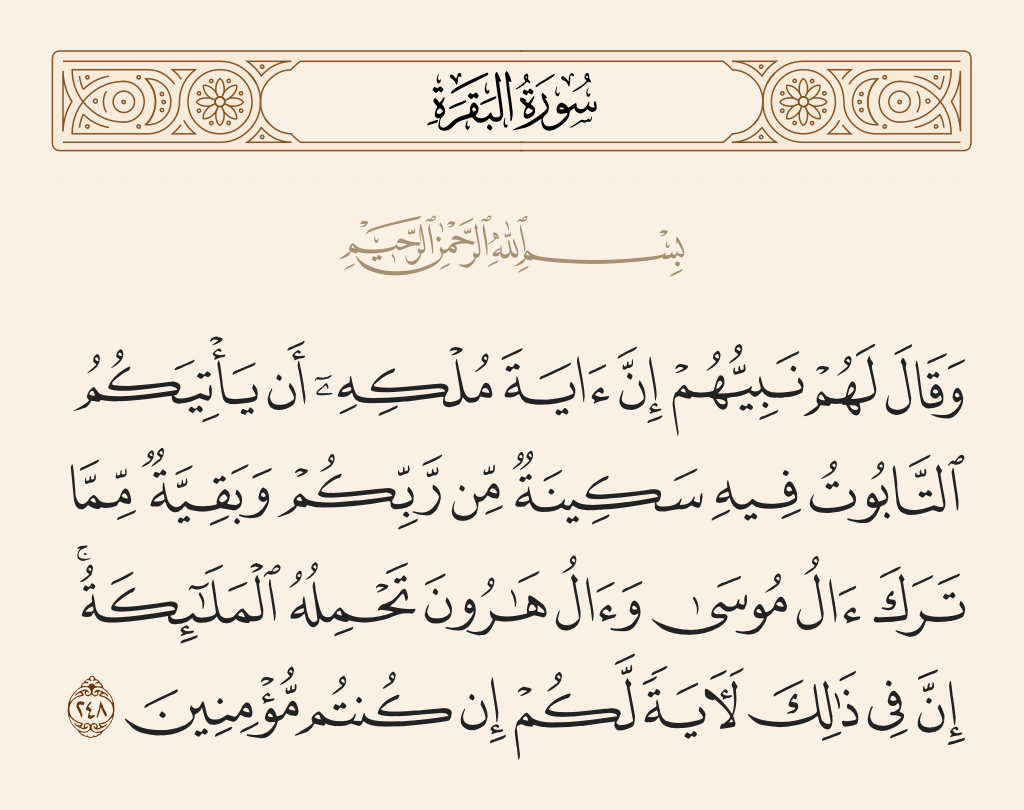 سُورَةُ البَقَرَةِ
بِسْمِ ٱللَّهِ ٱلرَّحْمَٰنِ ٱلرَّحِيمِ
وَقَالَ لَهُمْ نَبِيُّهُمْ إِنَّ ءَايَةَ مُلْكِهِۦٓ أَن يَأْتِيَكُمُ
ٱلتَّابُوتُ فِيهِ سَكِينَةٌ مِّن رَّبِّكُمْ وَبَقِيَّةٌ مِّمَّا
تَرَكَ ءَالُ مُوسَىٰ وَءَالُ هَٰرُونَ تَحْمِلُهُ ٱلْمَلَٰٓئِكَةُ ۚ
إِنَّ فِى ذَٰلِكَ لَءَايَةً لَّكُمْ إِن كُنتُم مُّؤْمِنِينَ ٢٤٨